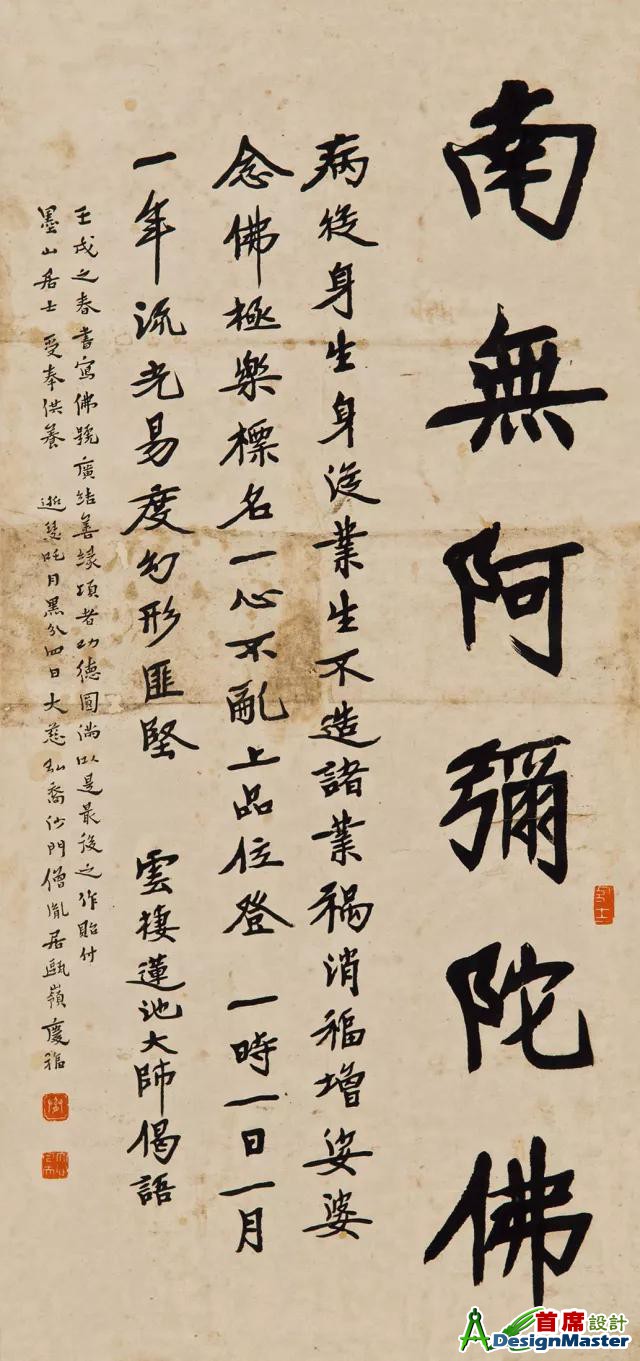 南無阿彌陀佛
病從身生身從業生不造諸業禍消福增娑婆
念佛極樂標名一心不亂上品位登 一時一日一月
一年流光易度幻形匪堅 雲棲蓮池大師偈語
壬戌之春書寫佛號廣結善緣項者功德圓滿以是最後之作貽付
墨山居士 受奉供養 逝瑟吒月黑分四日大慈弘裔沙門僧胤居甌嶺慶福
首席設計
DesignMaster